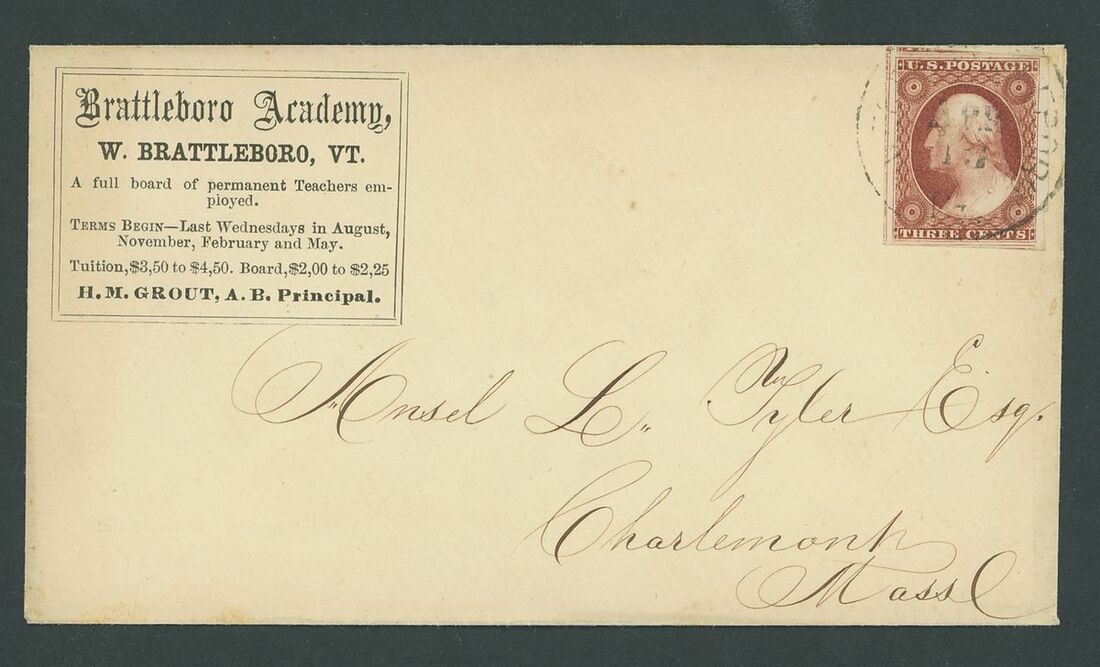 Brattleboro Academy,
W. BRATTLEBORO, VT.
A full board of permanent Teachers em-
ployed.
TERMS BEGIN—Last Wednesdays in August,
November, February and May.
Tuition,$3,50 to $4,50. Board,$2,00 to $2,25
H. M. GROUT, A. B. Principal.
U.S. POSTAGE
THREE CENTS
Ansel L. Tyler Esq.
Charlemont
Mass